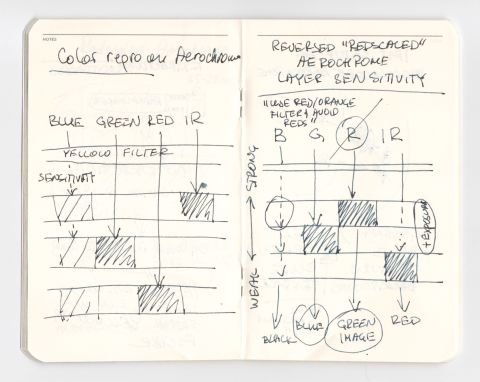 NOTES
Color repro on Aerochrome
BLUE GREEN RED IR
YELLOW FILTER
SENSITIVITY
REVERSED "REDSCALED"
AEROCHROME
LAYER SENSITIVITY
"USE RED/ORANGE
FILTER & AVOID
REDS"
B G R IR
WEAK ↔ STRONG
+ EXPOSURE
BLACK BLUE GREEN IMAGE RED